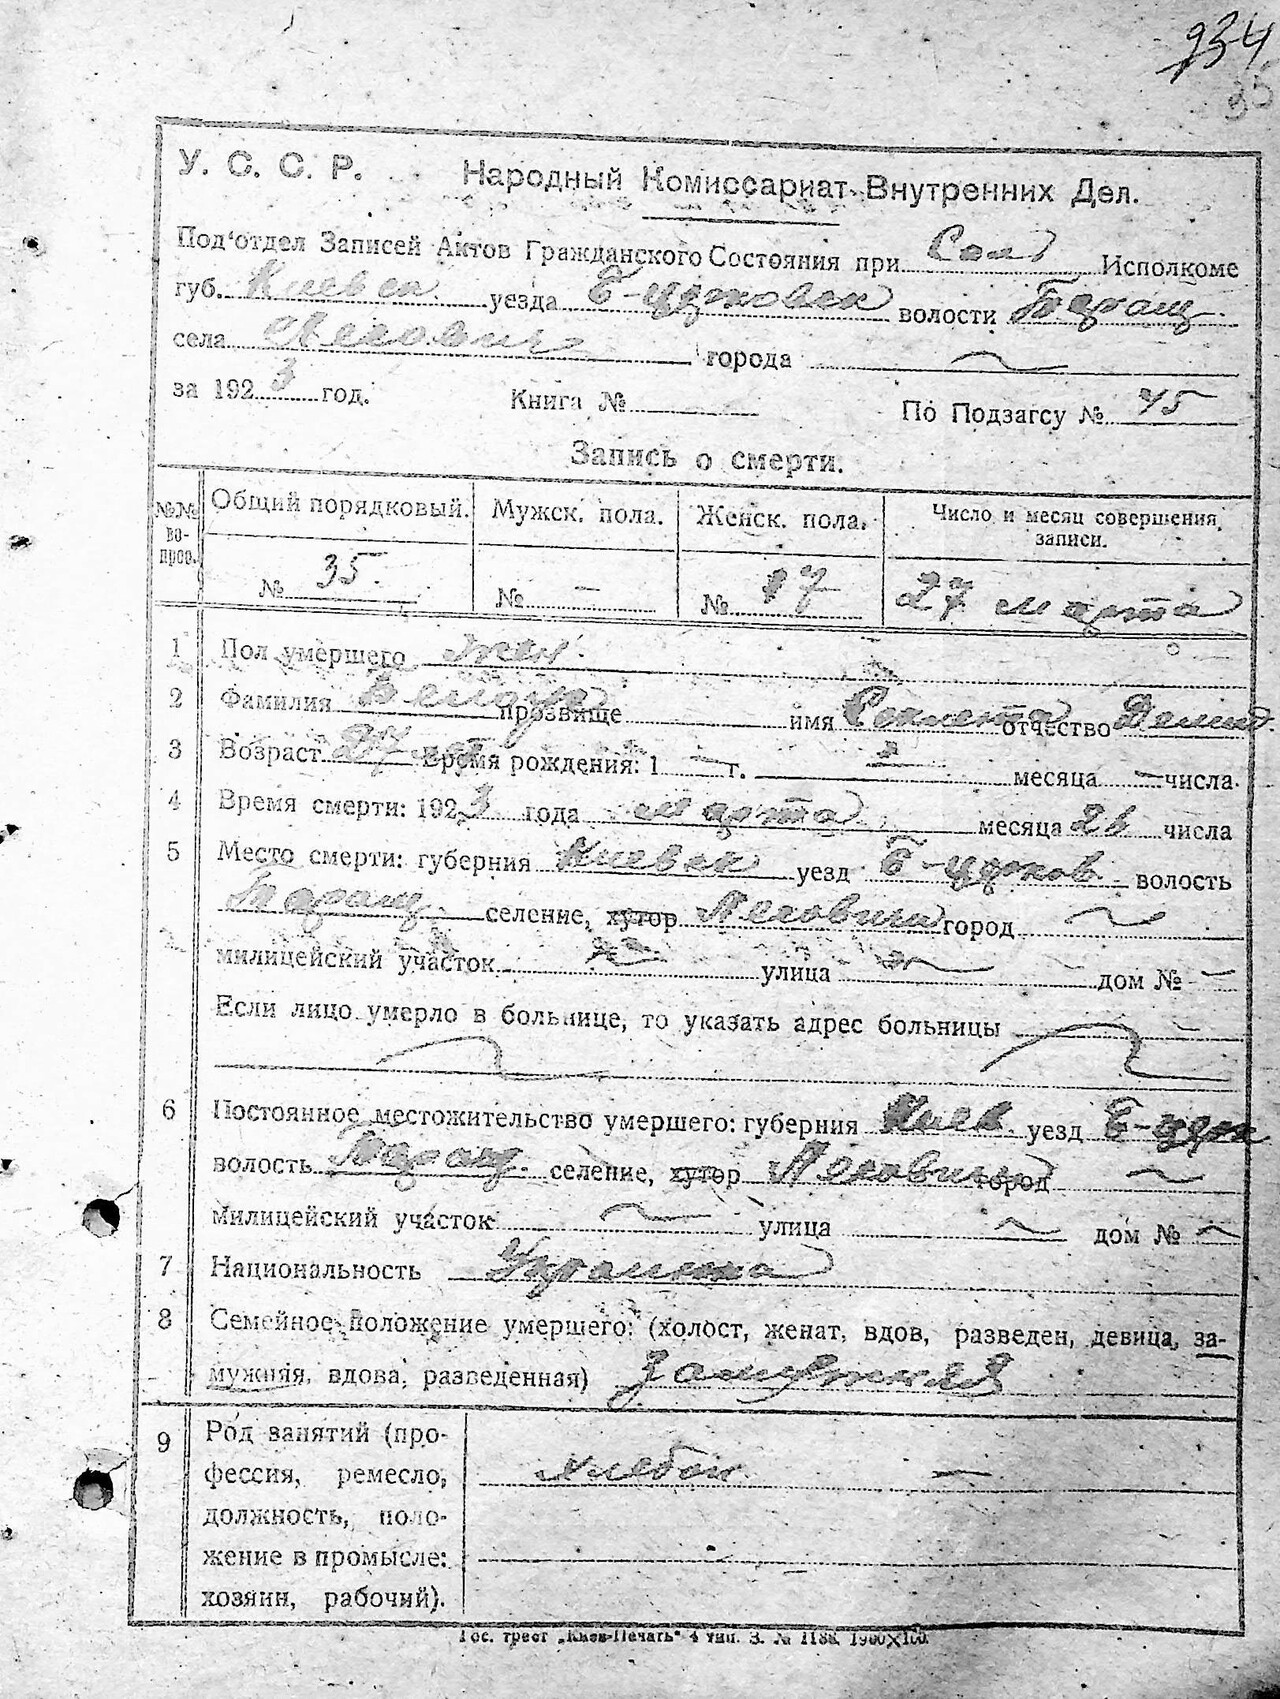 934
35
У. С. С. Р. Народный Комиссариат Внутренних Дел.
Под'отдел Записей Актов Гражданского Состояния при Исполкоме
губ. Киевск уезда Б-церковск волости Таращ.
села города
за 1923 год. Книга № По Подзагсу № 45
Запись о смерти.
№№ вопрос. Общий порядковый. Мужск. пола. Женск. пола. Число и месяц совершения записи.
№ 35. № — № 17 27 марта
1 Пол умершего жен.
2 Фамилия прозвище имя отчество Демид.
3 Возраст время рождения: 1 г. месяца — числа.
4 Время смерти: 1923 года марта месяца 26 числа
5 Место смерти: губерния Киевск уезд Б-церков волость
Таращ. селение, хутор Лесовичи город
милицейский участок улица дом № —
Если лицо умерло в больнице, то указать адрес больницы
6 Постоянное местожительство умершего: губерния Киев. уезд Б-церк
волость Таращ. селение, хутор Лесовичи город
Милицейский участок улица дом №
7 Национальность Украинка
8 Семейное положение умершего: (холост, женат, вдов, разведен, девица, за-
мужняя, вдова, разведенная) Замужняя
9 Род занятий (про-
фессия, ремесло, хлебоп. —
должность, поло-
жение в промысле:
хозяин, рабочий).
Гос. трест „Киев-Печать“ 4 тип. З. № 1188. 1900×100.